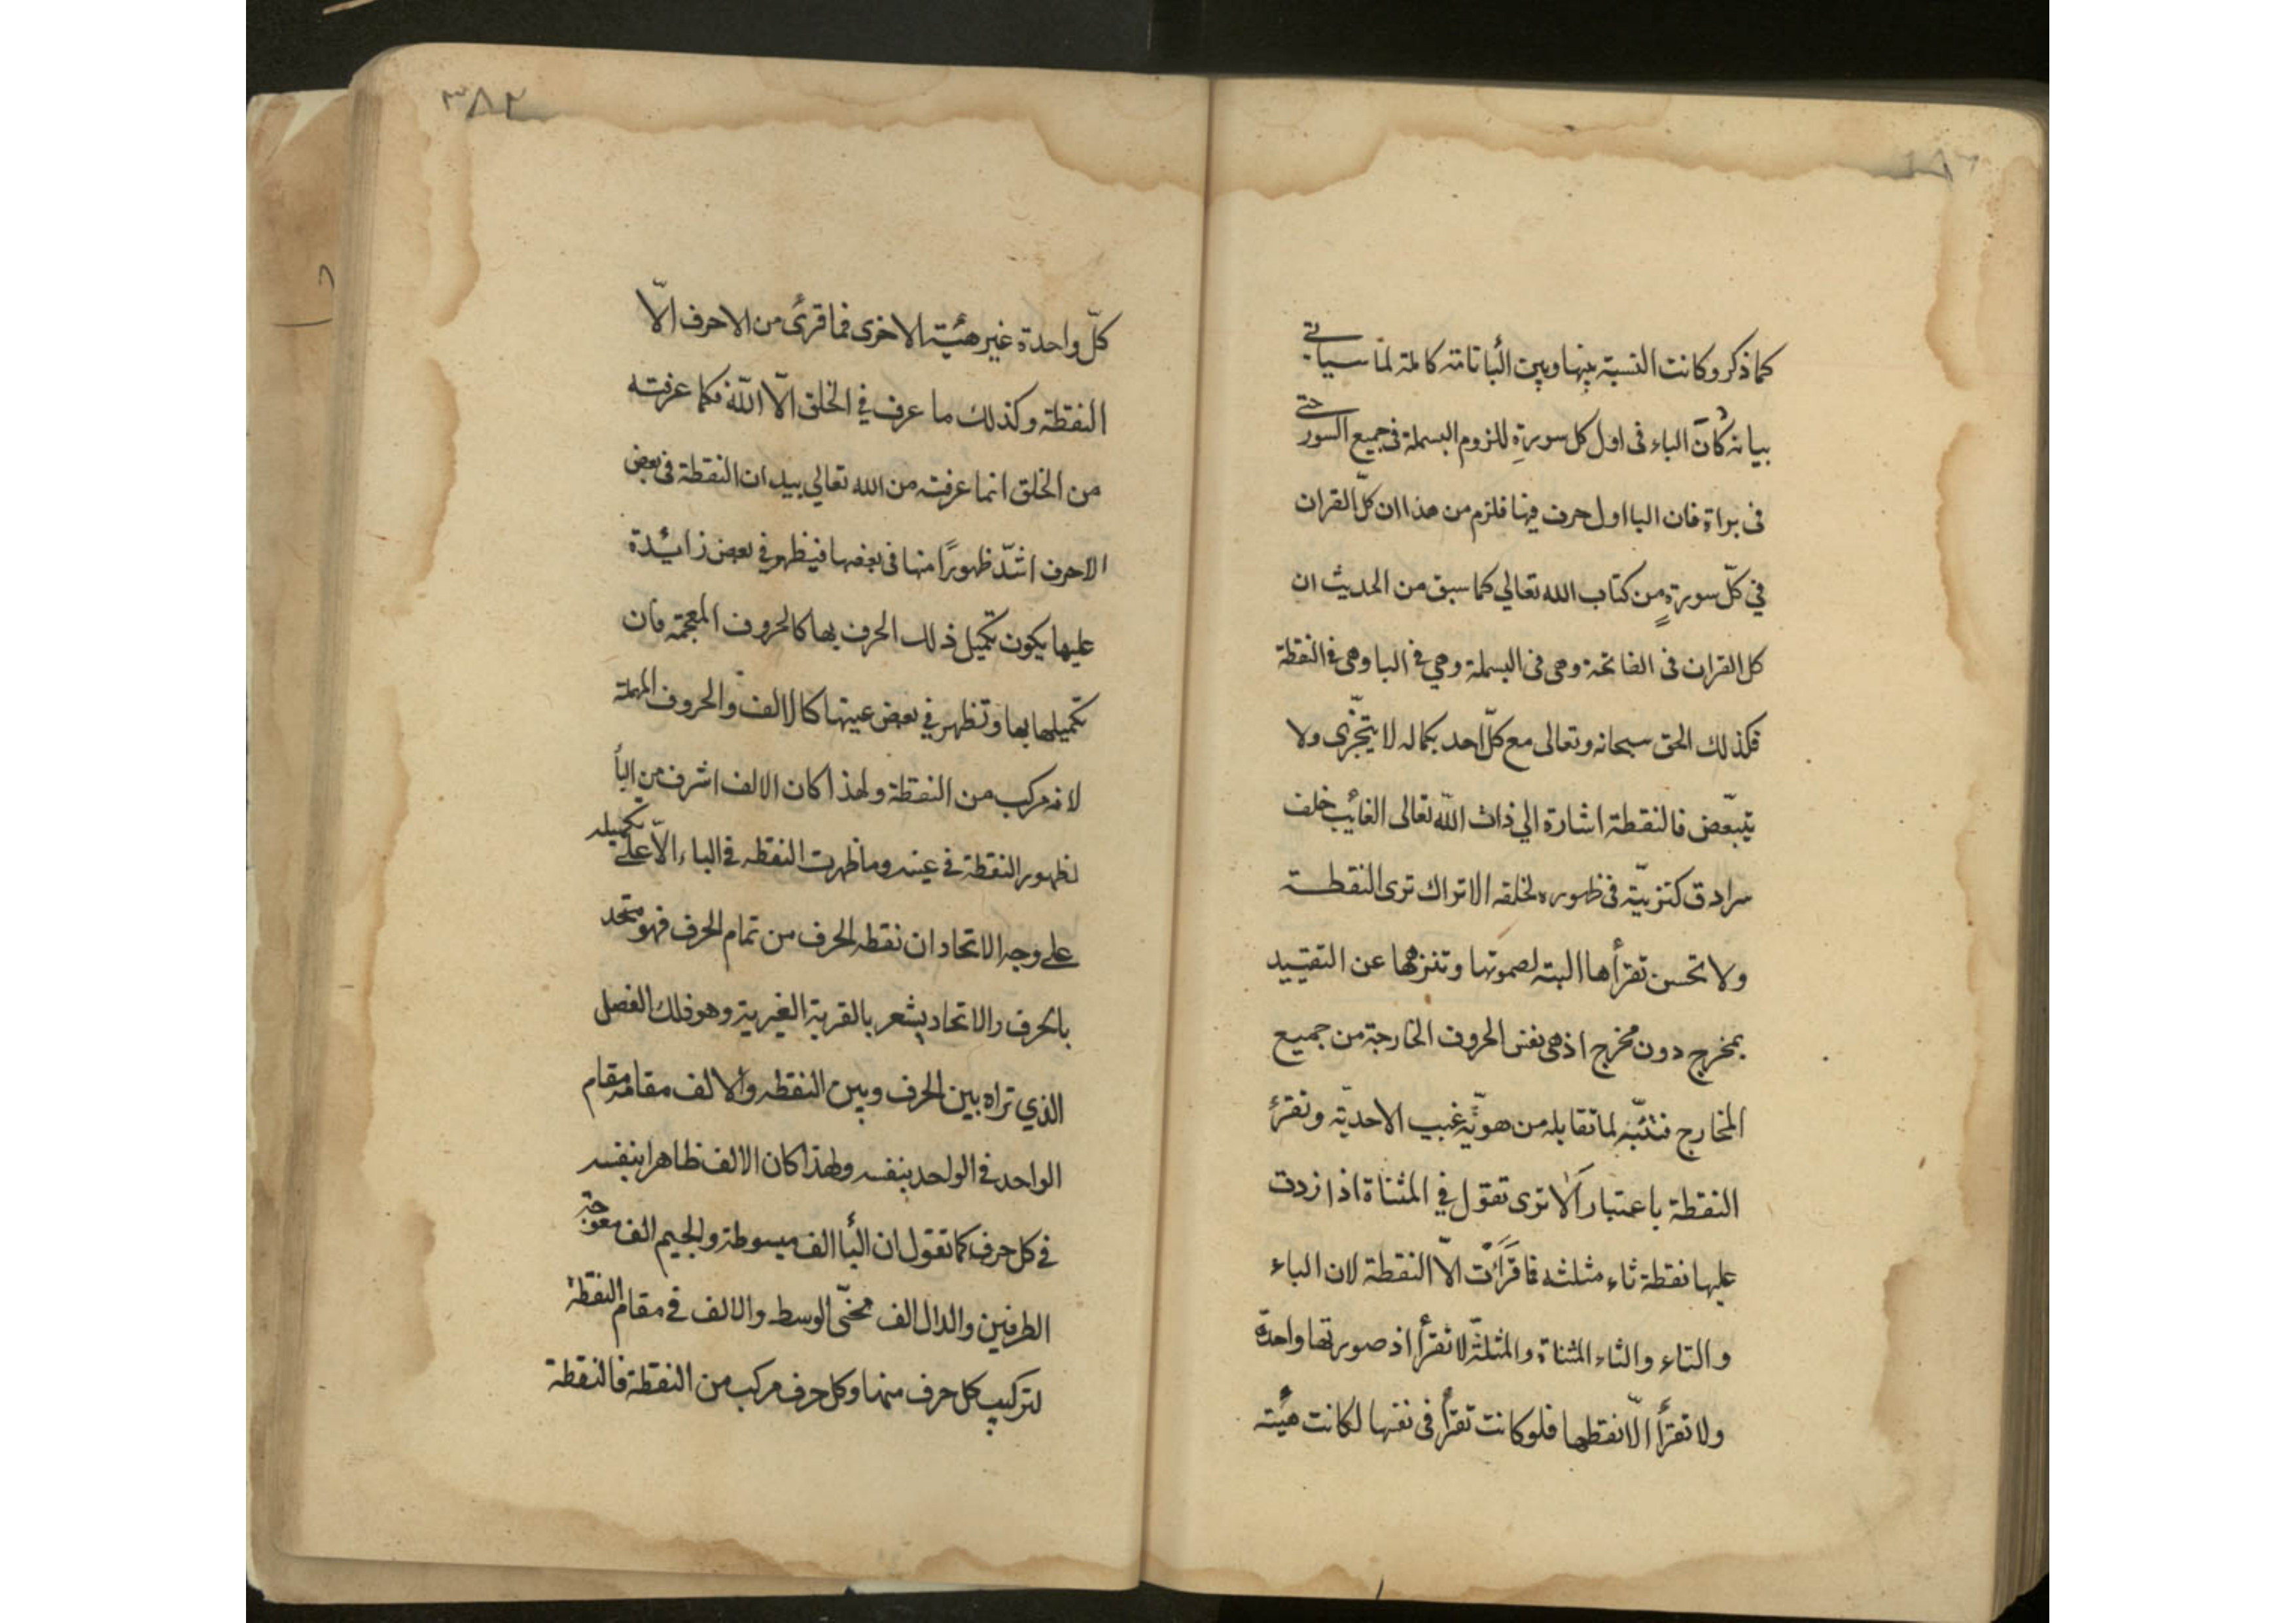 كما ذكر وكانت النسبة بينها وبين البأ تامة كاملة لما سياتى
بيانه كان الباء فى اول كل سورةٍ للزوم البسملة فى جميع السور حتى
فى براة فان البا اول حرف فيها فلزم من هذا ان كلّ القران
في كلّ سورةٍ من كتاب الله تعالي كما سبق من الحديث ان
كل القران فى الفاتحة وهى فى البسملة وهي في البا وهى فى النقطة
فكذلك الحق سبحانه وتعالى مع كلّ احد بكماله لا يتجّزى ولا
يتبعّض فالنقطة اشارة الي ذات اللّه تعالى الغائب خلف
سرادق كنزيّته فى ظهوره لخلقه الا تراك ترى النقطة
ولا تحسن تقرأها البته لصموتها وتنزهها عن التقييد
بمخرج دون مخرج اذ هى نفس الحروف الخارجة من جميع
المخارج فتنبّه لما تقابله من هويّة غيب الاحديّة وتقرأ
النقطة باعتبار الا ترى تقول في المثناة اذا زدت
عليها نقطة ثاء مثلثه فما قرأت الّا النقطة لان الباء
والتاء والثاء المثناة والمثلثّة لا تقرأ اذ صورتها واحدة
ولا تقرأ الّا نقطها فلو كانت تقرأ فى نفسها لكانت هيئته
٣٨٢
كلّ واحدة غير هيئة الاخرى فما قرئ من الاحرف الّا
النقطة وكذلك ما عرف في الخلق الّا اللّه فكما عرفته
من الخلق انما عرفته من الله تعالي بيد ان النقطة فى بعض
الاحرف اشدّ ظهورًا منها فى بعضها فيظهر في بعض زائدة
عليها يكون تكميل ذلك الحرف بها كالحروف المعجمة فان
تكميلها بها وتظهر في بعض عينها كالالف والحروف المهملة
لانه مركب من النقطة ولهذا كان الالف اشرف من البأ
لظهور النقطة في عينه وما ظهرت النقطه في الباء الّا على تكميله
على وجه الاتحاد ان نقطه الحرف من تمام الحرف فهو متحد
بالحرف والاتحاد يشعر بالقربة الغيرية وهو فلك الفصل
الذي تراه بين الحرف وبين النقطه والالف مقامه مقام
الواحد في الواحد بنفسه ولهذا كان الالف ظاهرا بنفسه
في كل حرف كما تقول ان البأ الف مبسوطة والجيم الف معوجة
الطرفين والدال الف محنّى الوسط والالف في مقام النقطة
لتركيب كل حرف منها وكل حرف مركب من النقطة فالنقطة